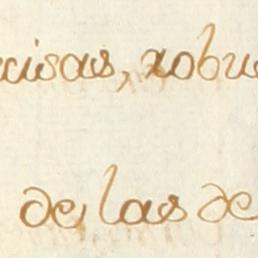 cisas, robu
de, las de